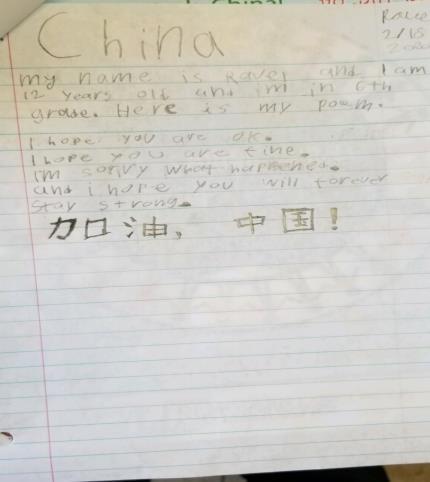 China
my name is Raver and I am
12 years old and im in 6th
grade. Here is my poem.
I hope you are ok.
I hope you are fine.
im sorry what happened.
and i hope you will forever
stay strong.
加口油, 中国!
2/15